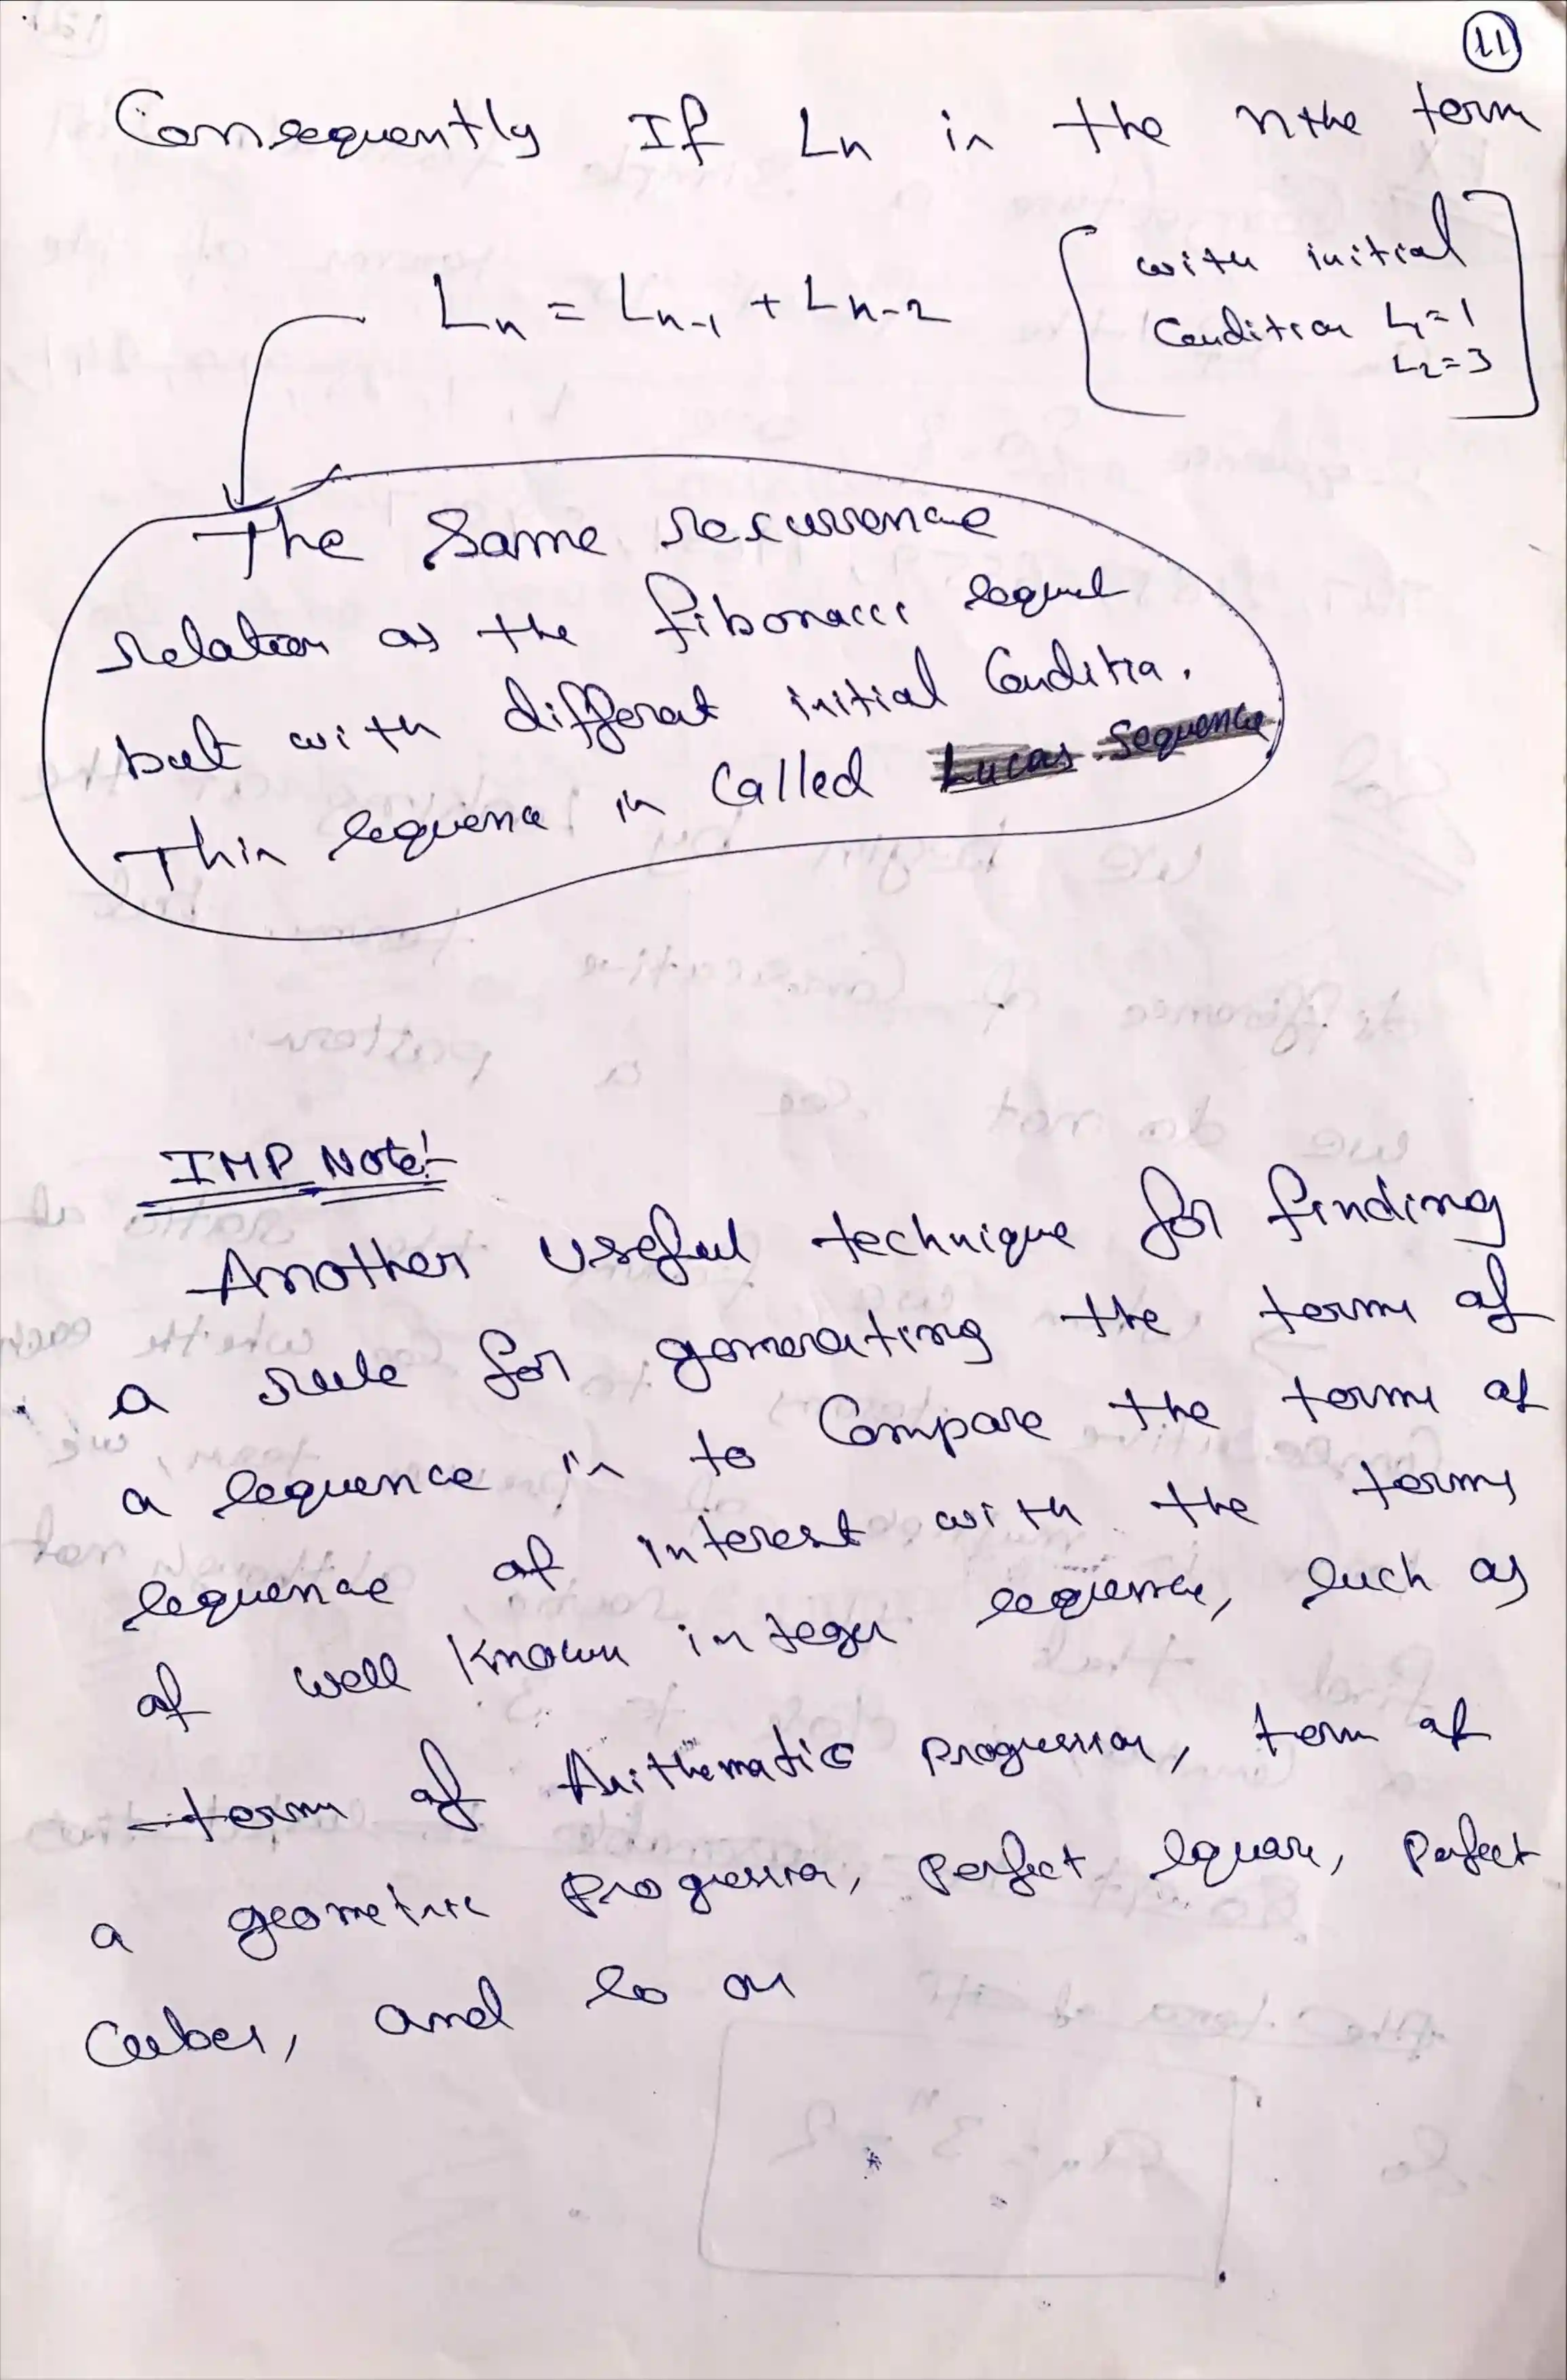 11
Consequently If Ln is the nthe term
Ln = Ln-1 + Ln-2
[ with initial
Condition L1=1
L2=3 ]
The Same recurrence
relation as the fibonacci
but with different initial Condition.
This sequence is Called Lucas Sequence
IMP Note:-
Another Useful technique for finding
a rule for generating the terms of
a sequence is to Compare the terms of
sequence of interest with the terms
of well known integer sequence, such as
term of Arithematic progression, term of
a geometric progression, perfect square, perfect
Cubes, and so on